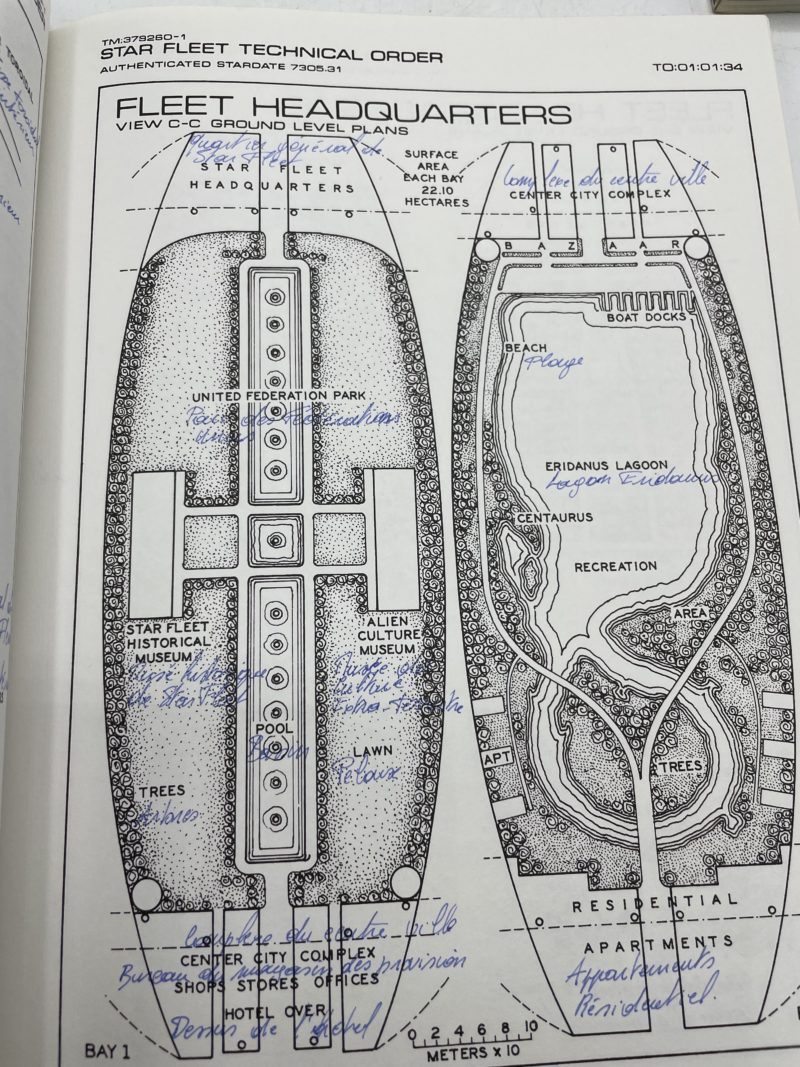 TM:379260-1
STAR FLEET TECHNICAL ORDER
AUTHENTICATED STARDATE 7305.31
TO:01:01:34
FLEET HEADQUARTERS
VIEW C-C GROUND LEVEL PLANS
quartier général de
Star Fleet
STAR FLEET
HEADQUARTERS
SURFACE
AREA
EACH BAY
22.10
HECTARES
Complexe du centre ville
CENTER CITY COMPLEX
BAZAAR
BOAT DOCKS
BEACH
Plage
UNITED FEDERATION PARK
Parc des Fédérations
unies
ERIDANUS LAGOON
Lagon Eridanus
CENTAURUS
RECREATION
AREA
STAR FLEET
HISTORICAL
MUSEUM
Musée historique
de Star Fleet
ALIEN
CULTURE
MUSEUM
Musée de
Culture
Extra-Terrestre
POOL
Bassin
LAWN
Pelouse
TREES
Arbres
APT
TREES
RESIDENTIAL
APARTMENTS
Appartements
Résidentiel
Complexe du centre ville
CENTER CITY COMPLEX
Bureau du magasin des provision
SHOPS STORES OFFICES
HOTEL OVER
Dessus de l'hôtel
BAY 1
0 2 4 6 8 10
METERS x 10